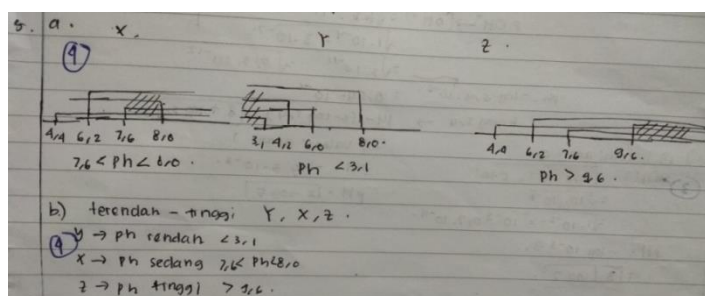 5. a. X. Y Z.
4
4,4 6,2 7,6 8,0 3,1 4,2 6,0 8,0. 4,4 6,2 7,6 9,6.
7,6 < Ph < 8,0. Ph < 3,1 Ph > 9,6.
b.) terendah - tinggi Y, X, Z.
4 y → ph rendah < 3,1
X → Ph sedang 7,6 < Ph < 8,0
Z → Ph tinggi > 9,6.